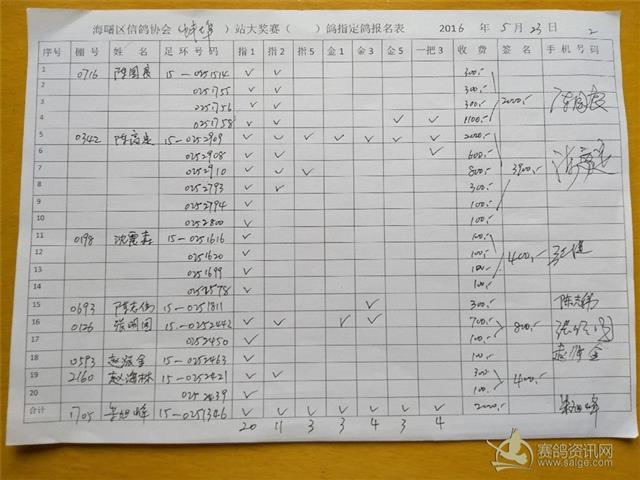 海曙区信鸽协会 ( ) 站大奖赛 ( ) 鸽指定鸽报名表 2016 年 5 月 23 日 2
序号 棚号 姓名 足环号码 指1 指2 指5 金1 金3 金5 一把3 收费 签名 手机号码
1 0716 陈国良 15-0251514 ✓ ✓ 300,-
2 0251755 ✓ ✓ 300,-
3 0251756 ✓ ✓ 300,- 2000,-
4 0251758 ✓ ✓ ✓ ✓ 1100,-
5 0342 15-0252909 ✓ ✓ ✓ ✓ ✓ ✓ ✓ 2000,-
6 0252908 ✓ ✓ ✓ 600,-
7 0252910 ✓ ✓ ✓ 800,- 3900,-
8 0252793 ✓ ✓ 300,-
9 0252794 ✓ 100,-
10 0252800 ✓ 100,-
11 0198 15-0251616 ✓ 100,-
12 0251620 ✓ 100,- 400,-
13 0251699 ✓ 100,-
14 0252578 ✓ 100,-
15 0693 陈志伟 15-0251811 ✓ 300,- 陈志伟
16 0126 张明国 15-0252442 ✓ ✓ ✓ ✓ 700,- 800,-
17 0252450 ✓ 100,-
18 0593 赵海金 15-0252463 ✓ 100,- 赵海金
19 2160 赵海林 15-0252421 ✓ ✓ 300,- 400,-
20 0252439 ✓ 100,-
合计 1705 15-0251346 ✓ ✓ ✓ ✓ ✓ ✓ ✓ 2000,-
20 11 3 3 4 3 4
赛鸽资讯网
www.saige.com